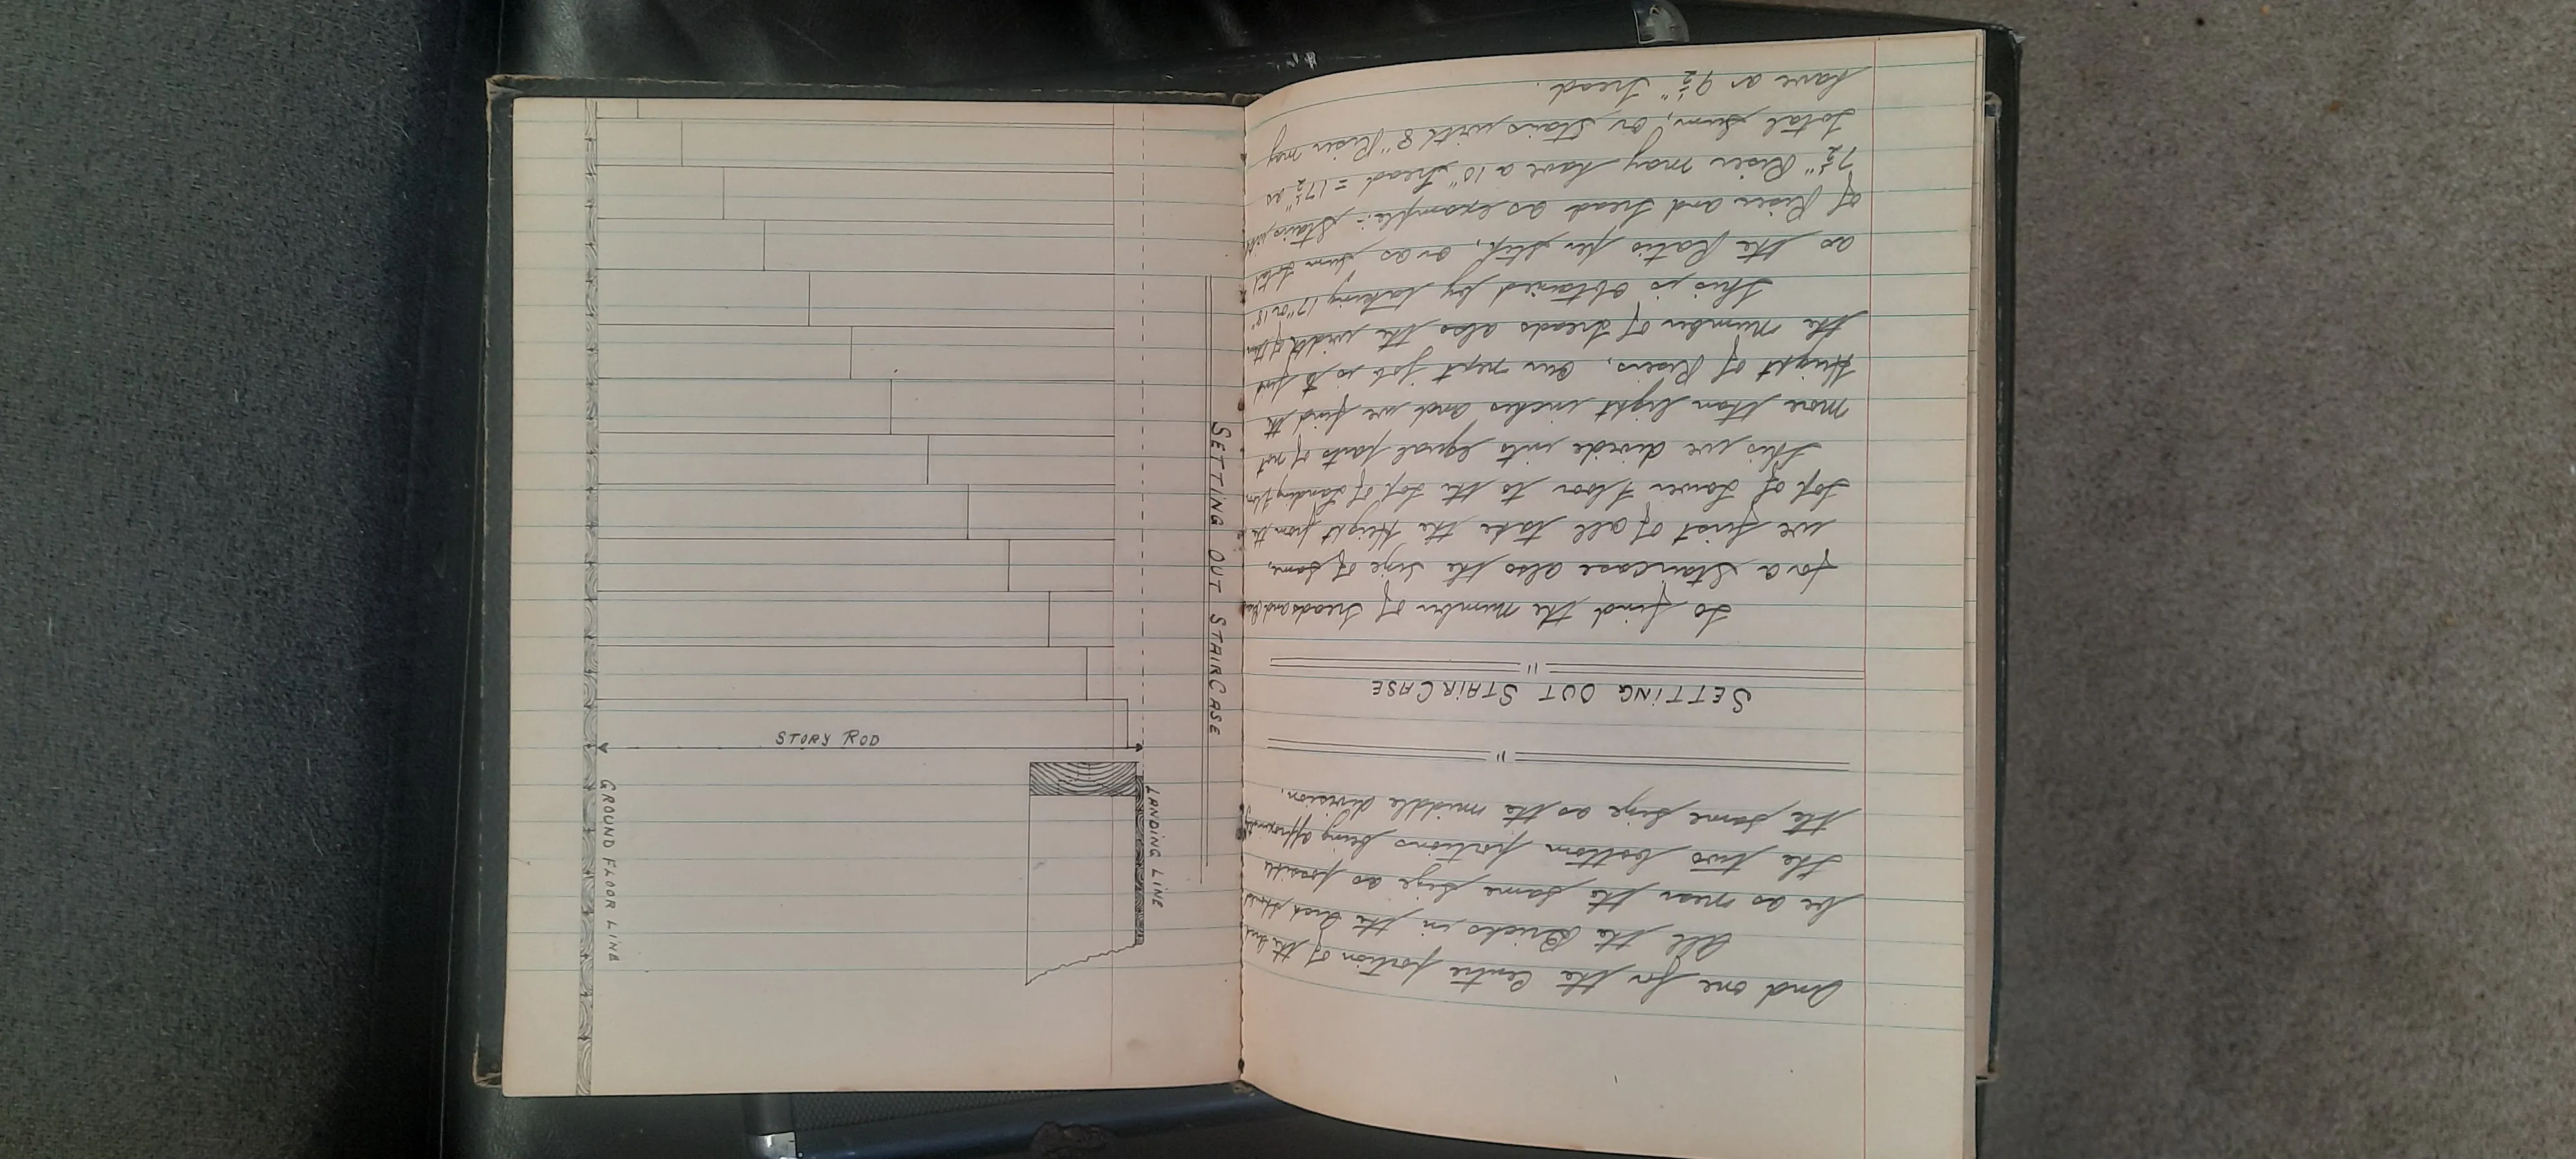 and one for the Centre portion of the
All the Bricks in the Arch should
be as near the same size as possible
the two bottom portions being approximately
the same size as the middle division.
SETTING OUT STAIRCASE
To find the number of Treads and
for a Staircase also the size of same,
we first of all take the Height from the
top of Lower Floor to the top of Landing
this we divide into equal parts of not
more than eight inches and we find the
Height of Risers, our next job is to find
the number of treads also the width of them
This is obtained by taking 17" or 18"
as the Ratio per step, or as sum total
of Riser and tread as example:- Stairs with
7½" Riser may have a 10" tread = 17½" as
total sum, or stairs with 8" Riser may
have a 9½" tread.
SETTING OUT STAIRCASE
LANDING LINE
STORY ROD
GROUND FLOOR LINE